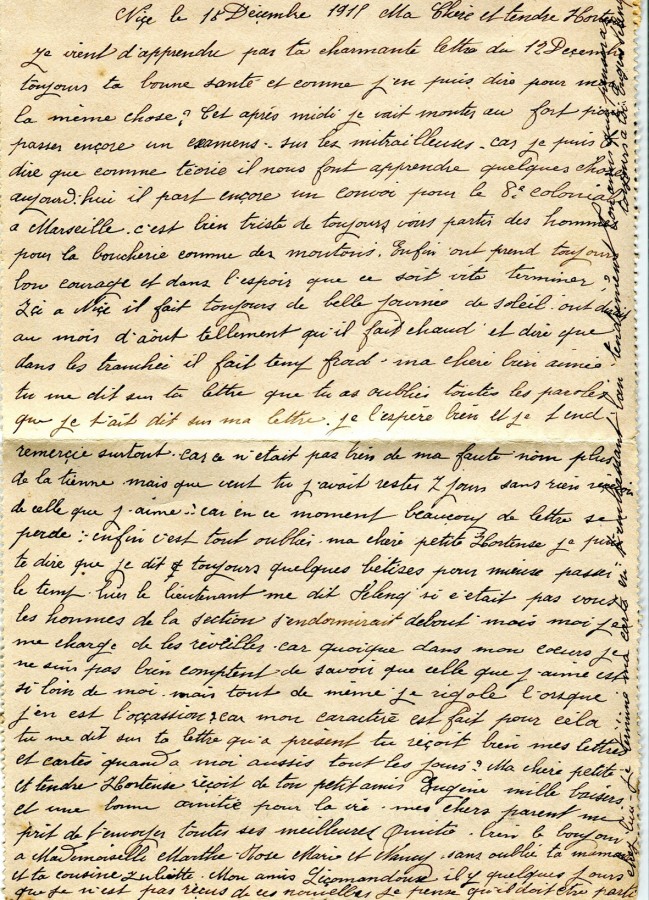 Niçe le 18 Décembre 1915 Ma Chère et tendre Horten
Je vient d'apprendre pas ta charmante lettre du 12 Decem
toujours ta bonne santé et comme j'en puis dire pour m
la même chose? Cet après midi je vait monter au fort po
passer ençore un examens. sur les mitrailleuses. car je puis
dire que comme téorie il nous font apprendre quelques cho
aujourd'hui il part ençore un convoi pour le 8e colonia
a Marseille. c'est bien triste de toujours voirs partir des homme
pour la boucherie comme des moutons. Enfin ont prend toujour
bon courage et dans l'espoir que ce soit vite terminer?
Içi a Niçe il fait toujours de belle journée de soleil. ont dirait
au mois d'août tellement qu'il fait chaud et dire que
dans les tranchée il fait temp froid. ma chere bien aimée
tu me dit sur ta lettre que tu as oubliés toutes les paroles
que je t'ait dit sur ma lettre. je l'espère bien et je t'end
remerçie surtout. car ce n'était pas bien de ma faute nom plus
de la tienne. mais que veut tu j'avait restes 7 jours sans rien reçu
de celle que j'aime:. car en ce moment beaucoup de lettre se
perde:. enfin c'est tout oublier. ma chère petite Hortense je puis
te dire que je dit toujours quelques bétises pour mieuse passer
le temp. hier le lieutenant me dit Seleng si c'était pas vous
les hommes de la section s'endormirait debout. mais moi je
me charge de les réveiller. car quoique dans mon coeurs je
ne suis pas bien comptent de savoir que celle que j'aime est
si loin de moi. mais tout de meme je rigole l'orsque
j'en est l'occassion? car mon caractère est fait pour cela
tu me dit sur ta lettre qu'a présent tu reçoit bien mes lettres
et cartes quand a moi aussis tout les jours? Ma chere petite
et tendre Hortense reçoit de ton petit amis Eugène mille baisers
et une bonne amitié pour la vie. mes chers parent me
prit de t'envoyer toutes ses meilleures Amitié. bien le bonjour
a Mademoiselle Marthe Rose Marie et Nancy. sans oublié ta maman
et ta cousine Juliette. Mon amis Giçomandou il y quelques jours
que je n'est pas reçus de ces nouvelles je pense qu'il doit être parti
chez lui. je termine ma carte en t'embrassant bien tendrement ton amis qui pensera
toujours a toi Eugène Seleng